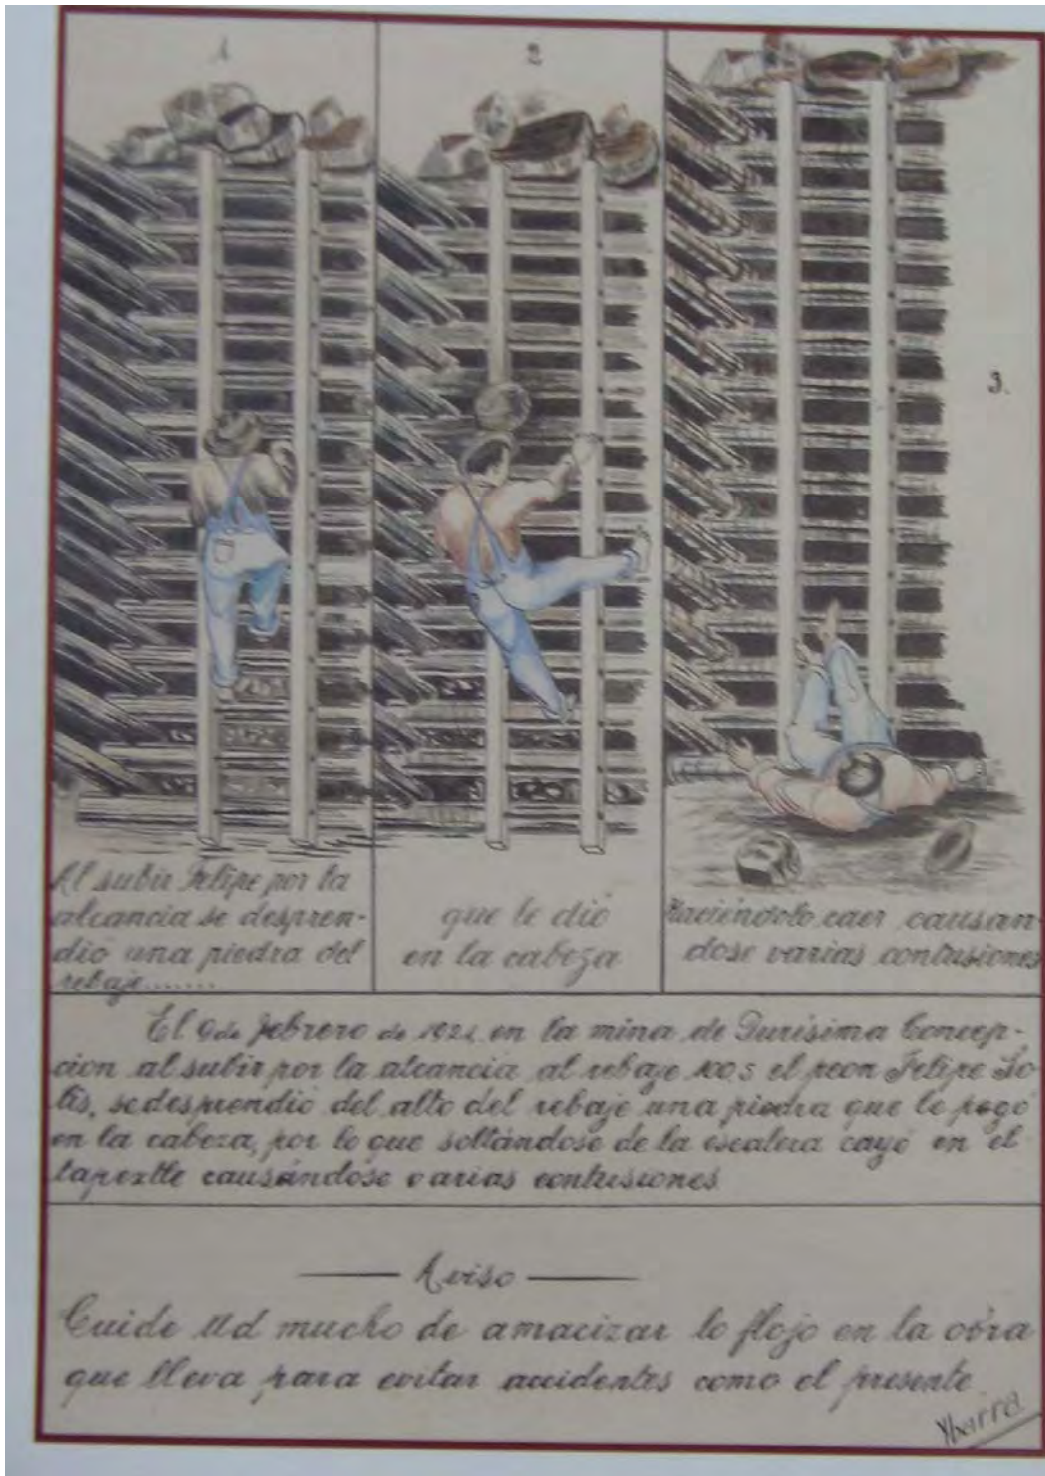 1
2
3.
Al subir Felipe por la
alcancia se despren-
dió una piedra del
rebaje.......
que le dió
en la cabeza
Haciéndolo caer causan-
dose varias contusiones
El 9 de febrero de 192 en la mina de Purísima Concep-
cion al subir por la alcancia al rebaje 100 s el peon Felipe So-
lis, se desprendió del alto del rebaje una piedra que le pegó
en la cabeza, por lo que soltándose de la escalera cayó en el
tapextle causándose varias contusiones
Aviso
Cuide Ud mucho de amacizar lo flojo en la obra
que lleva para evitar accidentes como el presente
Ybarra